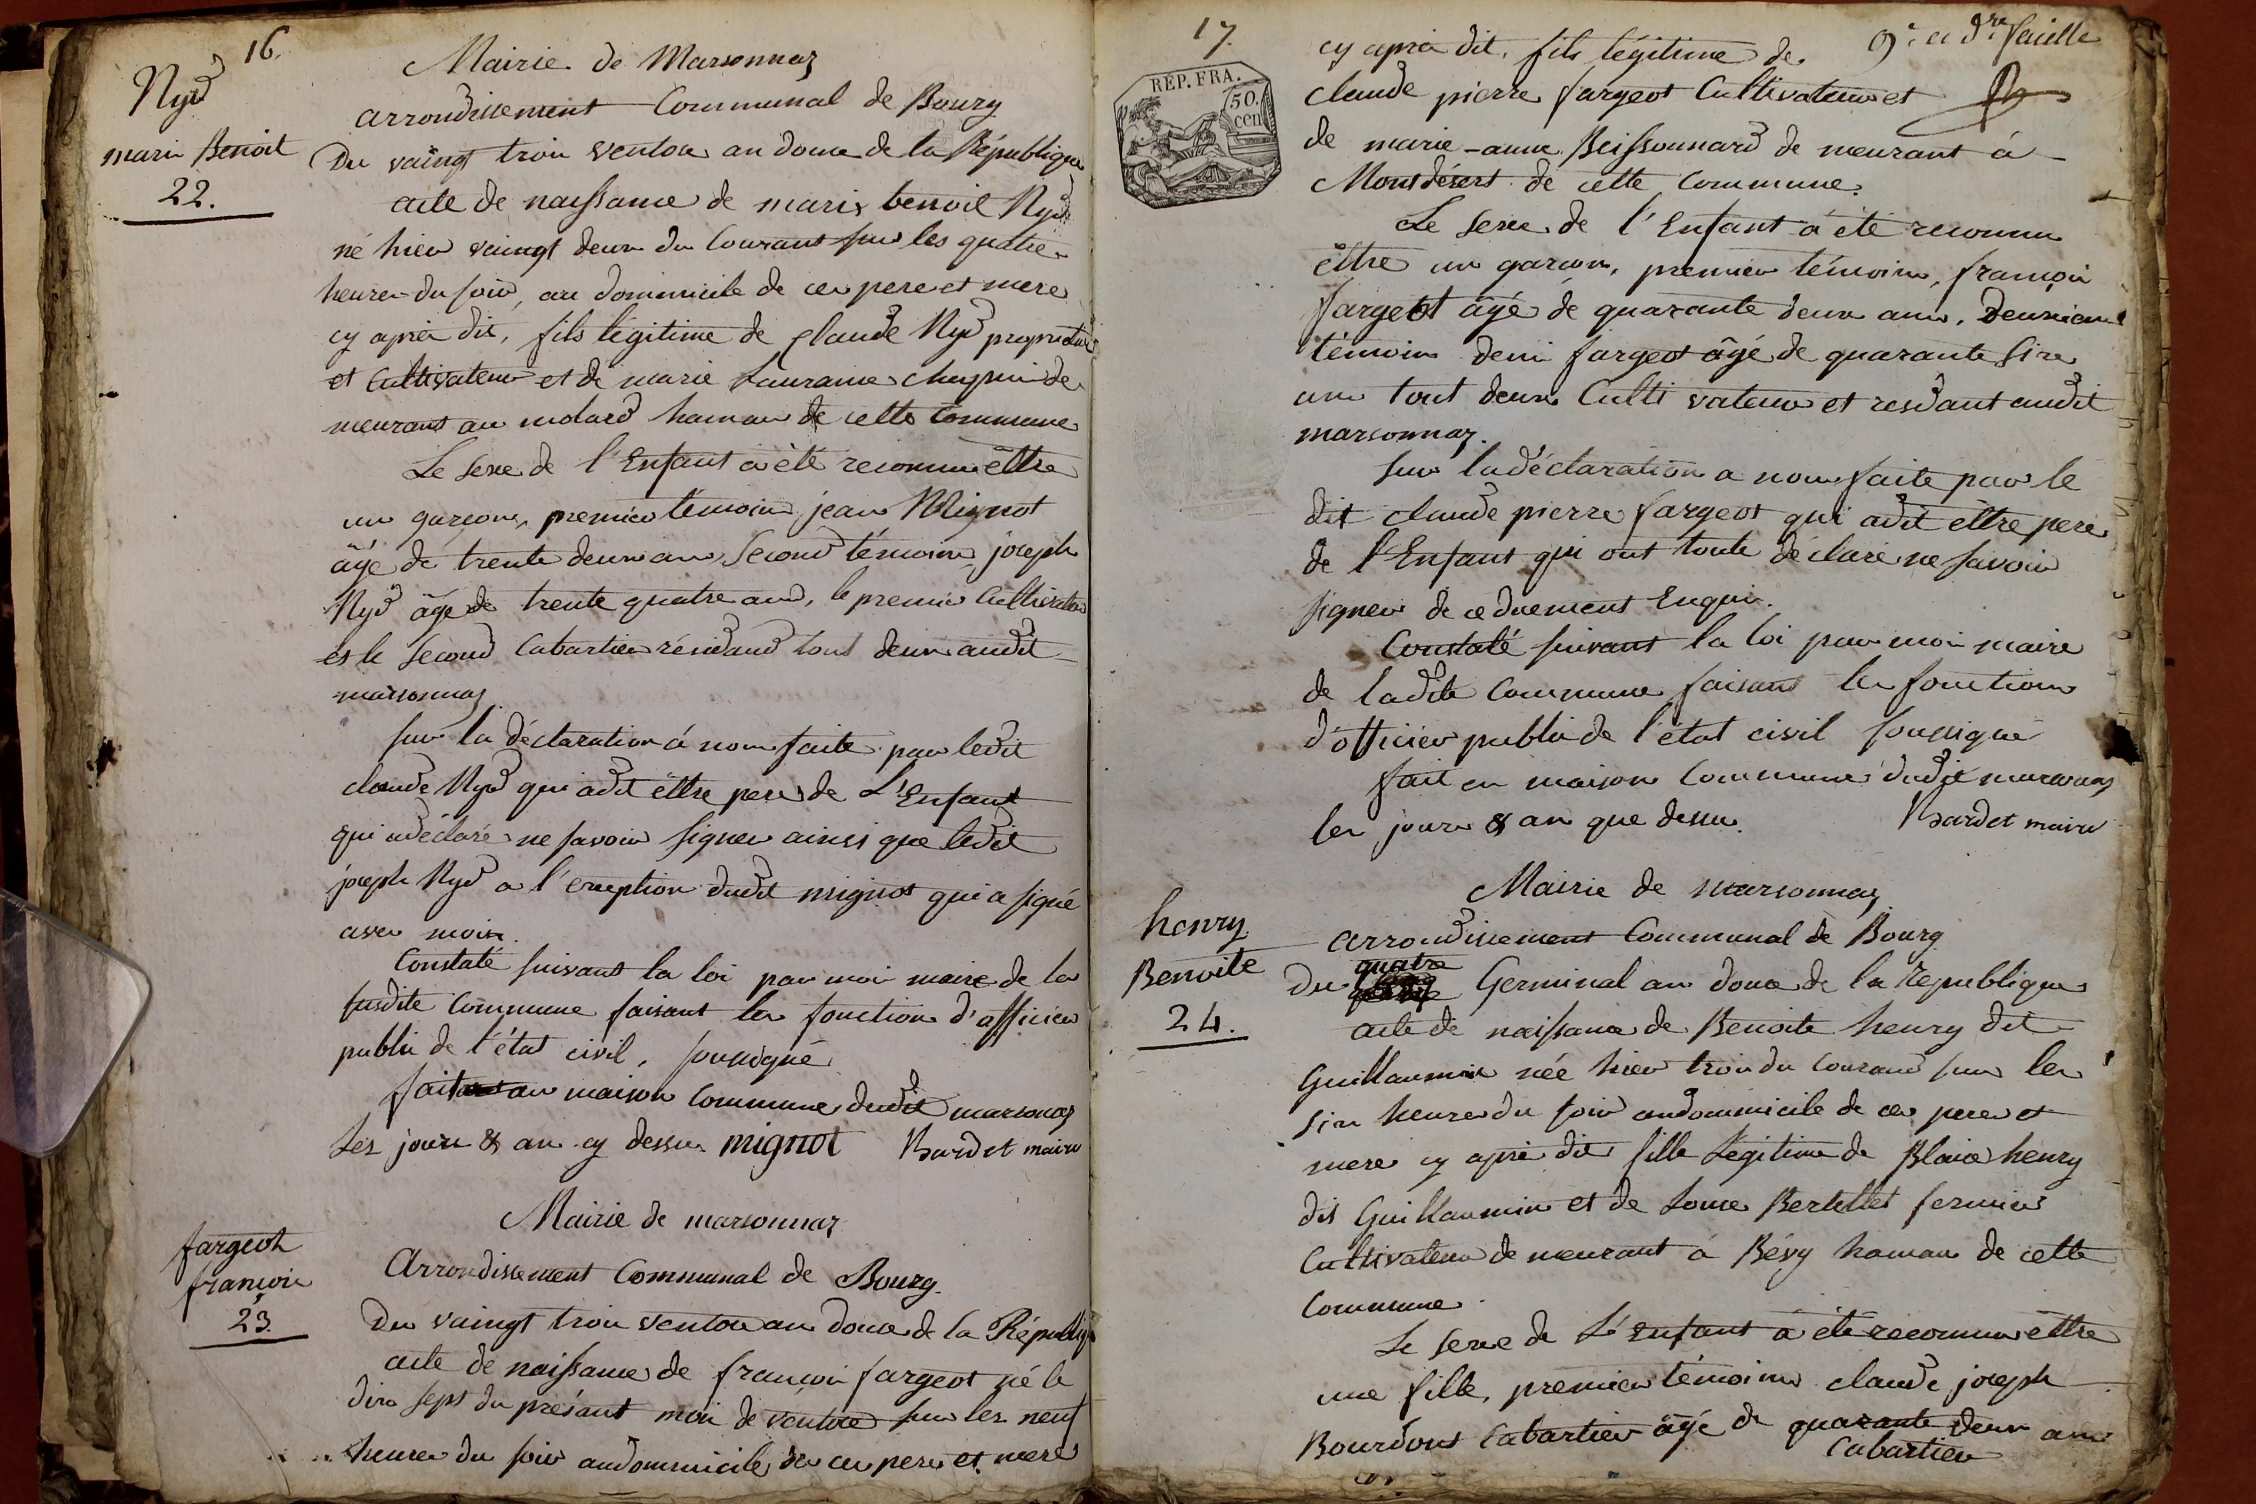 16.
Nyd
marie Benoit
22.
Mairie de Marsonnaz
arrondissement Communal de Bourg
Du vaingt troi ventose an douce de la République
acte de naissance de marie benoit Nyd
né hier vaingt deux du Courant sur les quatre
heures du soir, au dommicile de ces pere et mere
cy aprés dit, fils légitime de Claude Nyd proprietaire
et Cultivateur et de marie Laurance de
meurant au molard hamau de cette Commune
Le sexe de l'Enfant a èté reconnu êttre
un garçons, premier témoins jean Mignot
âgé de trente deux ans, Second témoins joseph
Nyd âgé de trente quatre and, le premier Cultivateur
et le Second Cabartier résidand tout deux audit
marsonnaz
sur la déclaration á nous faite par ledit
claude Nyd qui adit êttre pere de L'Enfant
qui adéclaré ne savoir signer ainsi que ledit
joseph Nyd a l'exception dudit mignot qui a signé
avec moix
Constaté suivant la loi par moi maire de la
susdite Commune faisant les fonction d'officier
public de l'état civil, soussigné
fait au maison Commune dudit marsonaz
Les jours & an cy dessus mignot Bardet maire
fargeot
françois
23.
Mairie de marsonnaz
Arrondissement Communal de Bourg.
Du vaingt trois ventose an douce de la République
acte de naissance de françois fargeot né le
dix sept du présant moi de ventose sur les neuf
heures du soir audommicile de ces pere et mere
17.
9.e et d.re faille
REP. FRA.
50.
cen
cy aprés dit, fils légitime de
claude pierre fargeot Cultivateur et
de marie-anne Beissonnard de meurant á
Montdésert de cette Commune.
Le sexe de l'Enfant á été reconnu
êttre un garçon, premier témoins, françois
fargeot âgé de quarante deux ans, Deuxiem
témoins deni fargeot âgé de quarante six
ans tout deux Culti vateur et resdant audit
marsonnaz.
sur la déclaration a nous faite par le
dit claude pierre fargeot qui adit êttre pere
de l'Enfant qui ont toute déclaré ne savoir
signer de ce duement Enquis.
Constaté suivant la loi par moi maire
de ladite Commune faisant les fonctions
d'officier public de l'état civil soussigné
fait en maison Commune dudit marsonaz
les jours & an que dessu. Bardet maire
henry
Benoite
24.
Mairie de marsonnaz
arrondissement Communal de Bourg
quatre
Du Germinal an douce de la République
acte de naissance de Benoite henry dit
Guillaumin née hier trois du Courand sur les
six heures du soir audommicile de ces pere et
mere cy aprés dit fille Légitime de Blaise henry
dit Guillaumin et de Louise Bertellet fermier
Cultivateur de meurant á Bévy hamau de cette
Commune.
Le sexe de L'Enfant á été reconnu êttre
une fille, premier témoins claude joseph
Bourdons Cabartier âgé de quarante deux ans
Cabartier